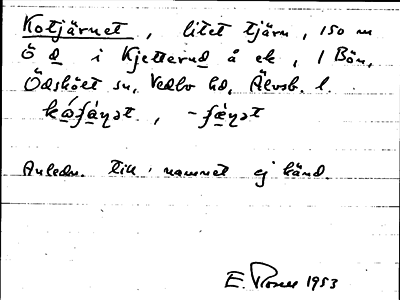 Kotjärnet, litet tjärn, 150 m
Ö d i Kjetterud å ek, 1 Bön,
Ödskölt sn, Vedbo hd, Älvsb. l.
Anledn. till namnet ej känd.
E. 1953